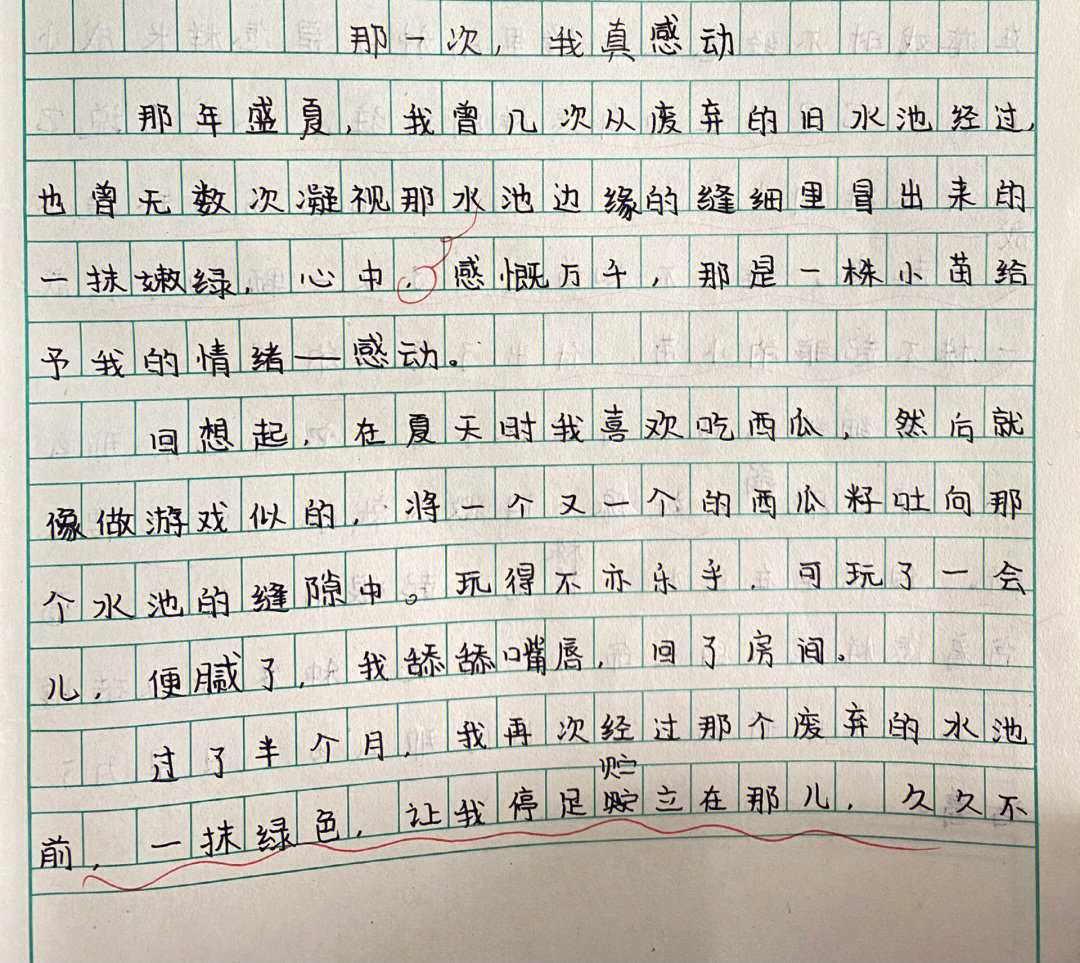 那一次，我真感动
那年盛夏，我曾几次从废弃的旧水池经过，
也曾无数次凝视那水池边缘的缝细里冒出来的
一抹嫩绿，心中，感慨万千，那是一株小苗给
予我的情绪——感动。
回想起，在夏天时我喜欢吃西瓜，然后就
像做游戏似的，将一个又一个的西瓜籽吐向那
个水池的缝隙中。玩得不亦乐乎，可玩了一会
儿，便腻了，我舔舔嘴唇，回了房间。
过了半个月，我再次经过那个废弃的水池
贮
前，一抹绿色，让我停足立在那儿，久久不